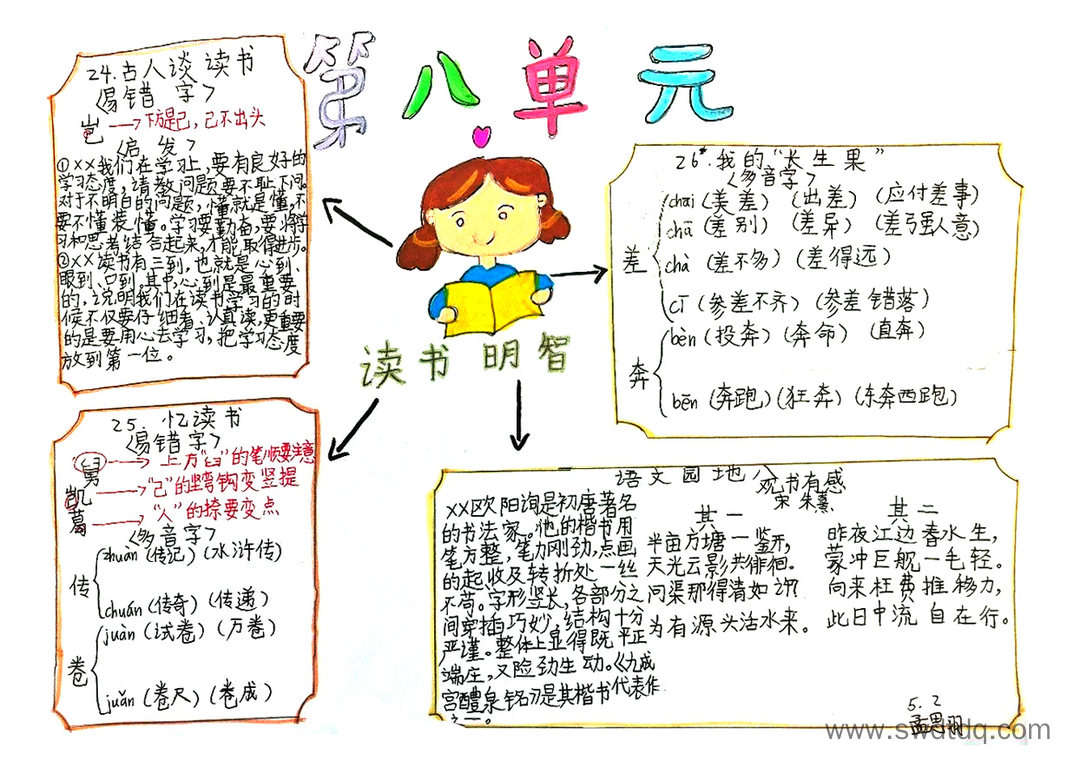 第八单元
24.古人谈读书
〈易错字〉
岂→下方是己,己不出头
〈启发〉
①××我们在学习上,要有良好的
学习态度,请教问题要不耻下问。
对于不明白的问题,懂就是懂,不
要不懂装懂。学习要勤奋,要将学
习和思考结合起来,才能取得进步。
②××读书有三到,也就是心到、
眼到、口到。其中,心到是最重要
的,说明我们在读书学习的时
候不仅要仔细看,认真读,更重要
的是要用心去学习,把学习态度
放到第一位。
读书明智
25.忆读书
〈易错字〉
舅→上方“臼”的笔顺要注意
凯→“己”的竖弯钩变竖提
葛→“人”的捺要变点
〈多音字〉
传
zhuàn(传记)(水浒传)
chuán(传奇)(传递)
卷
juàn(试卷)(万卷)
juǎn(卷尺)(卷成)
26*.我的“长生果”
〈多音字〉
差
chāi(美差)(出差)(应付差事)
chā(差别)(差异)(差强人意)
chà(差不多)(差得远)
cī(参差不齐)(参差错落)
奔
bèn(投奔)(奔命)(直奔)
bēn(奔跑)(狂奔)(东奔西跑)
语文园地八
××欧阳询是初唐著名
的书法家。他的楷书用
笔方整,笔力刚劲,点画
的起收及转折处一丝
不苟。字形竖长,各部分之
间穿插巧妙,结构十分
严谨。整体上显得既平正
端庄,又险劲生动。《九成
宫醴泉铭》是其楷书代表作
之一。
观书有感
宋 朱熹
其一
半亩方塘一鉴开,
天光云影共徘徊.
问渠那得清如许?
为有源头活水来。
其二
昨夜江边春水生,
蒙冲巨舰一毛轻。
向来枉费推移力,
此日中流自在行。
5.2
孟思羽
www.swdtdq.com